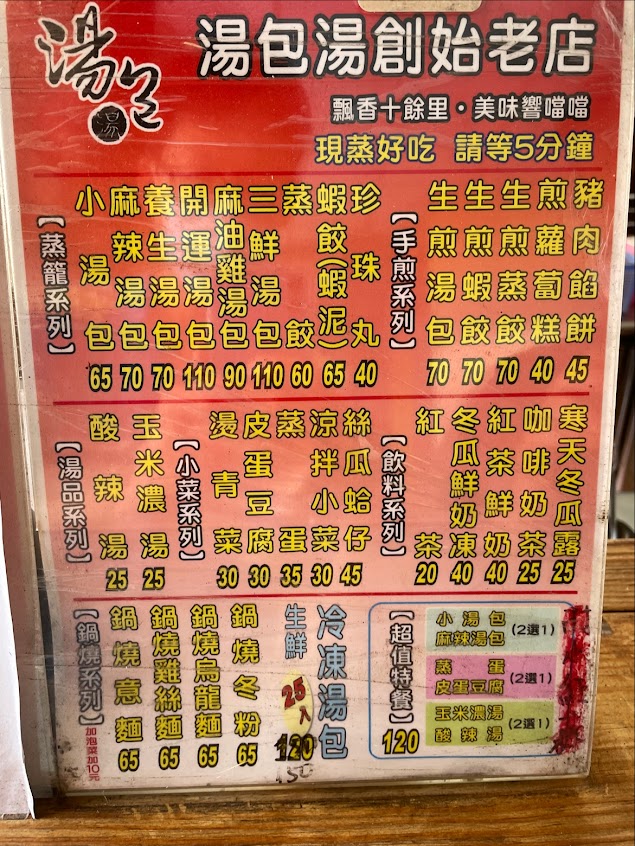 湯包
湯
湯包湯創始老店
飄香十餘里・美味響噹噹
現蒸好吃 請等5分鐘
【蒸籠系列】
小湯包 65
麻辣湯包 70
養生湯包 70
開運湯包 110
麻油雞湯包 90
三鮮湯包 110
蒸餃 60
蝦餃(蝦泥) 65
珍珠丸 40
【手煎系列】
生煎湯包 70
生煎蝦餃 70
生煎蒸餃 70
煎蘿蔔糕 40
豬肉餡餅 45
【湯品系列】
酸辣湯 25
玉米濃湯 25
【小菜系列】
燙青菜 30
皮蛋豆腐 30
蒸蛋 35
涼拌小菜 30
絲瓜蛤仔 45
【飲料系列】
紅茶 20
冬瓜鮮奶凍 40
紅茶鮮奶 40
咖啡奶茶 25
寒天冬瓜露 25
【鍋燒系列】
加泡菜加10元
鍋燒意麵 65
鍋燒雞絲麵 65
鍋燒烏龍麵 65
鍋燒冬粉 65
生鮮
冷凍湯包
25入
120
150
【超值特餐】
120
小湯包
麻辣湯包
(2選1)
蒸蛋
皮蛋豆腐
(2選1)
玉米濃湯
酸辣湯
(2選1)